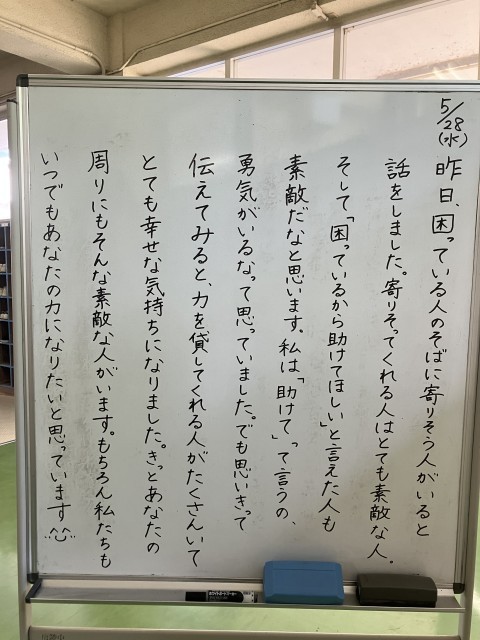 5/28(水)
昨日、困っている人のそばに寄りそう人がいると
話をしました。寄りそってくれる人はとても素敵な人。
そして「困っているから助けてほしい」と言えた人も
素敵だなと思います。私は「助けて」って言うの、
勇気がいるなって思っていました。でも思いきって
伝えてみると、力を貸してくれる人がたくさんいて
とても幸せな気持ちになりました。きっとあなたの
周りにもそんな素敵な人がいます。もちろん私たちも
いつでもあなたの力になりたいと思っています
ホワイトボードマーカー